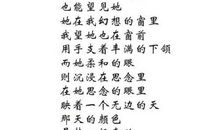 也能望见她
她在我幻想的窗里
我望她也在窗前
用手支着丰满的下颔
而她柔和的眼
则沉浸在思念里
在她思念的眼里
映着一个无边的天
那天的颜色